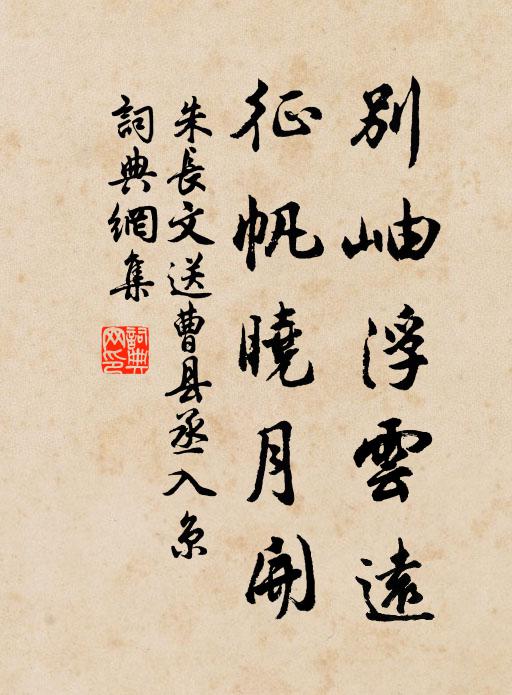 別岫浮雲遠
征帆曉月開
朱長文送曹县丞入京
詞典網集
詞典网印